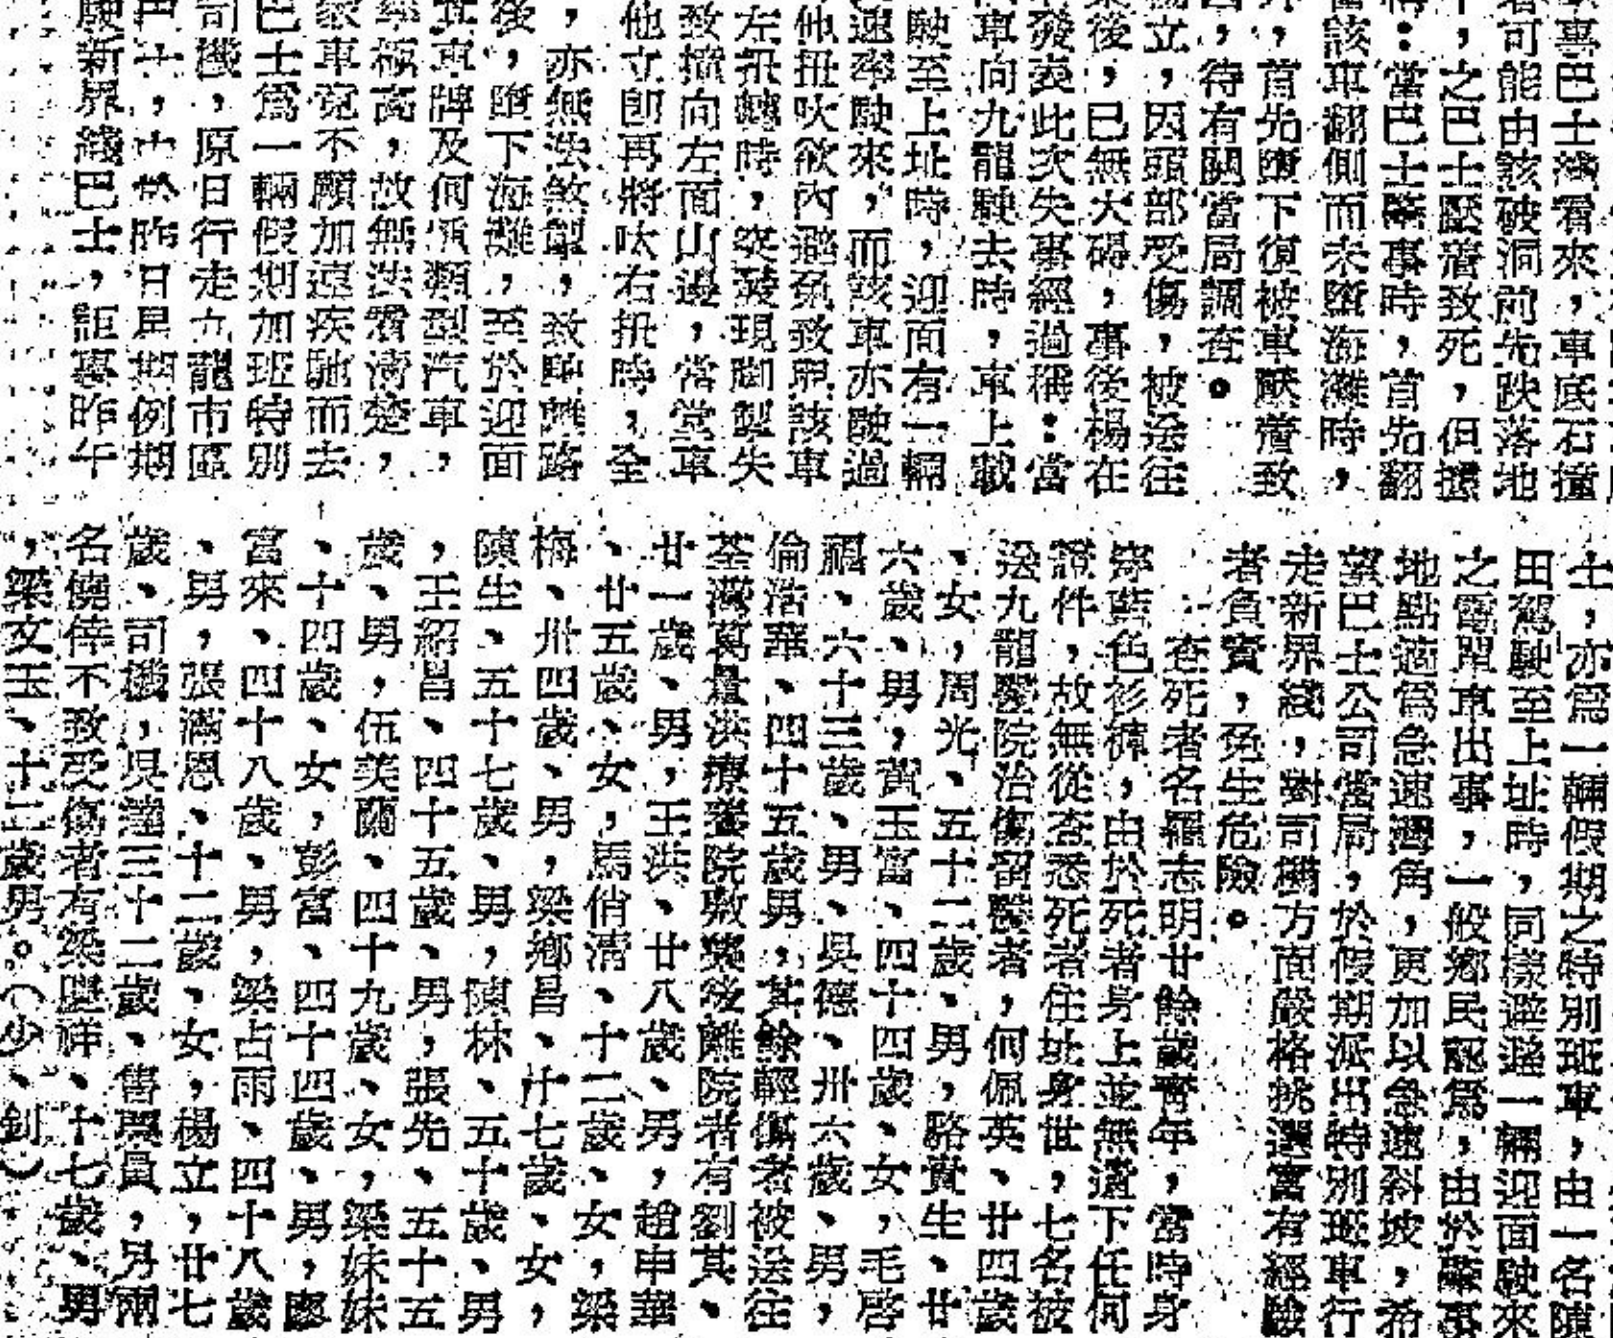 事巴士灣看來，車底石撞
可能由該破洞前先跌落地
，之巴士壓着致死，但據
：當巴士肇事時，首先翻
當該車翻側而未墮海灘時，
，首先墮下復被車壓着致
，待有關當局調查。
立，因頭部受傷，被送往
後，已無大碍，事後楊在
發表此次失事經過稱：當
車向九龍駛去時，車上載
駛至上址時，迎面有一輛
速率駛來，而該車亦駛過
他扭呔欲內避免致與該車
左扭轉時，突發現脚掣失
致撞向左面山邊，當堂車
他立即再將呔右扭時，全
，亦無法煞掣，致
後，墮下海灘，至於迎面
車牌及何類型汽車，
率極高，故無法看清楚，
家車竟不願加速疾馳而去
巴士為一輛假期加班特別
司機，原日行走九龍市區
巴士，昨日星期例期
駛新界綫巴士，詎事昨午
士，亦為一輛假期之特別班車，由一名陳
田駕駛至上址時，同樣避一輛迎面駛來
之電單車出事，一般鄉民認為，由於肇事
地點適為急速灣角，更加以急速斜坡，希
望巴士公司當局，於假期派出特別班車行
走新界綫，對司機方面嚴格挑選富有經驗
者負責，免生危險。
查死者名羅志明廿餘歲青年，當時身
穿藍色衫褲，由於死者身上並無遺下任何
證件，故無從查悉死者住址身世，七名被
送九龍醫院治傷留醫者，何佩英、廿四歲
、女，周光、五十二歲、男，駱貴生、廿
六歲、男，黃玉富、四十四歲、女，毛啓
福、六十三歲、男、吳德、卅六歲、男，
倫浩華、四十五歲男，其餘輕傷者被送往
荃灣葛量洪療養院敷藥後離院者有劉其、
廿一歲、男，王洪、廿八歲、男，趙申華
、廿五歲、女，馬俏清、十二歲、女，梁
梅、卅四歲、男，梁鄉昌、七歲、女，
陳生、五十七歲、男，陳林、五十歲、男
，王紹昌、四十五歲、男，張先、五十五
歲、男，伍美蘭、四十九歲、女，梁妹妹
、十四歲、女，彭富、四十四歲、男，廖
富來、四十八歲、男，梁占雨、四十八歲
、男，張滿恩、十二歲、女，楊立，廿七
歲、司機，吳達三十二歲、售票員，另兩
名僥倖不致受傷者有梁祥、十七歲、男
，梁文玉、十三歲男。（少、釗）